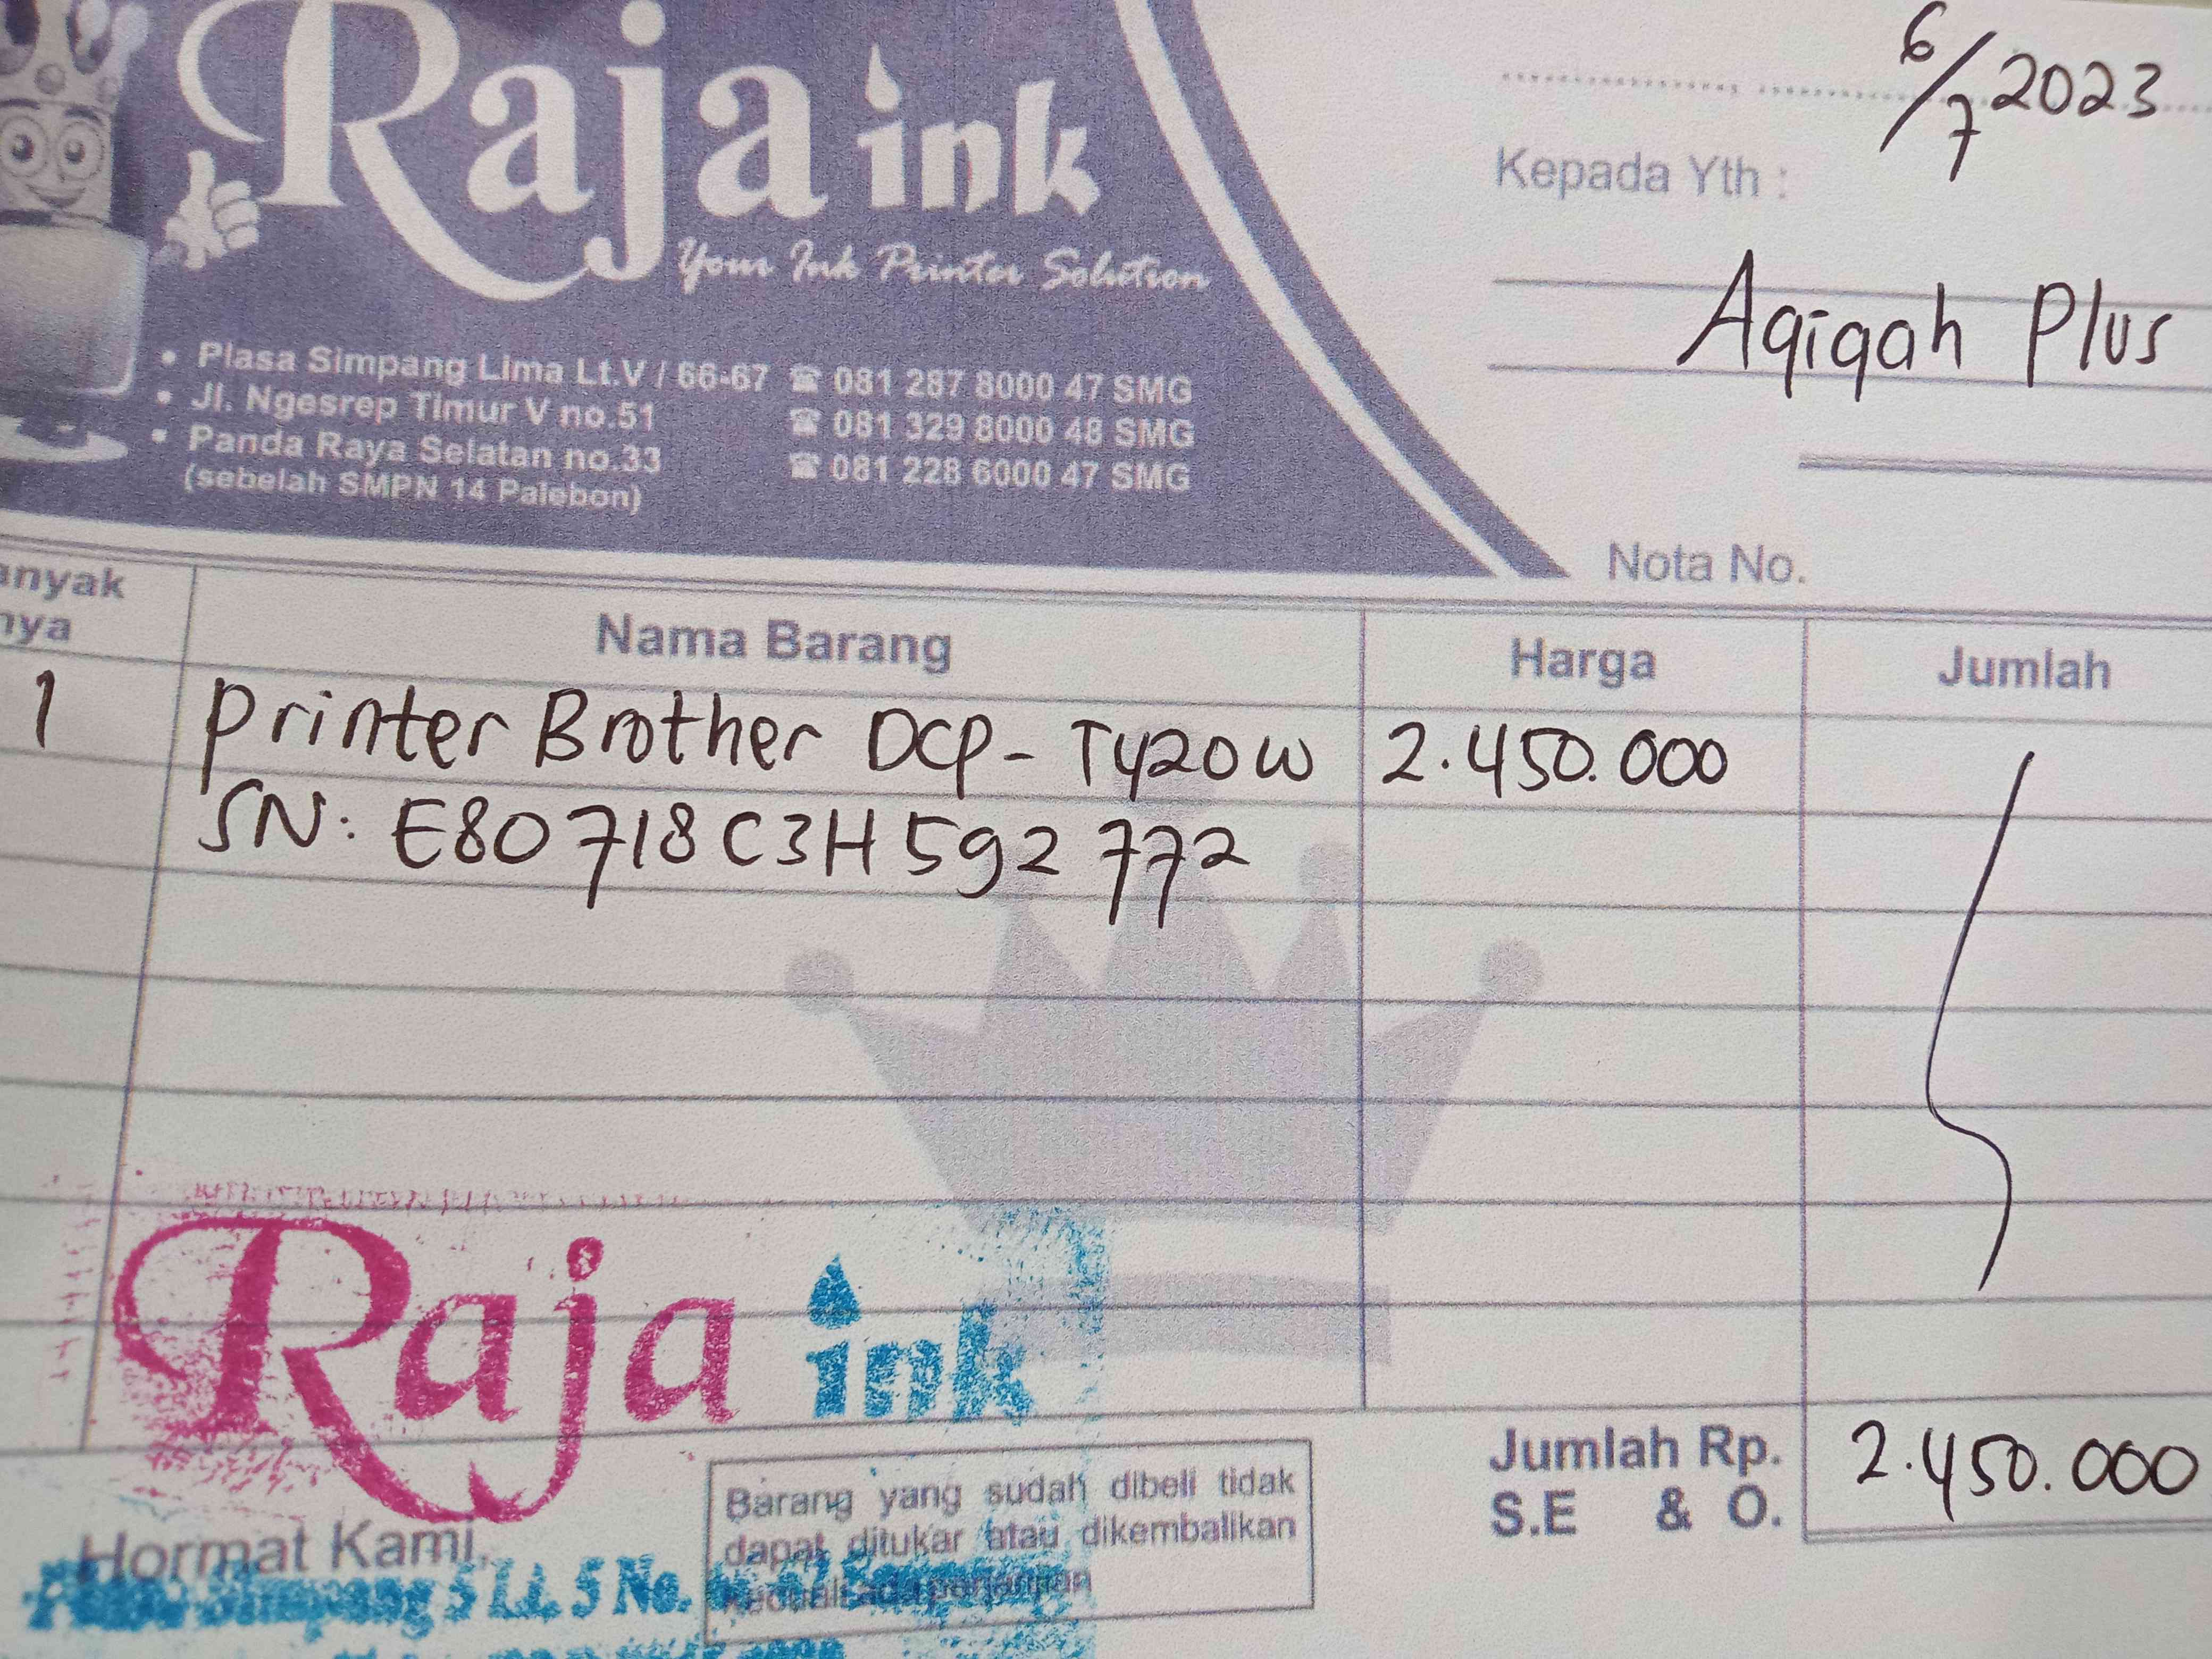 Raja ink
Your Ink Printer Solution
• Plasa Simpang Lima Lt.V / 66-67 ☎ 081 287 8000 47 SMG
• Jl. Ngesrep Timur V no.51 ☎ 081 329 8000 48 SMG
• Panda Raya Selatan no.33 ☎ 081 228 6000 47 SMG
(sebelah SMPN 14 Palebon)
6/7 2023
Kepada Yth :
Aqiqah Plus
Nota No.
anyak
nya
Nama Barang Harga Jumlah
1 Printer Brother DCP-T420W 2.450.000
SN: E80718C3H592772
Raja ink
Jumlah Rp. 2.450.000
S.E & O.
Hormat Kami,
Barang yang sudah dibeli tidak
dapat ditukar atau dikembalikan
kecuali ada perjanjian
Simpang 5 Lt. 5 No.